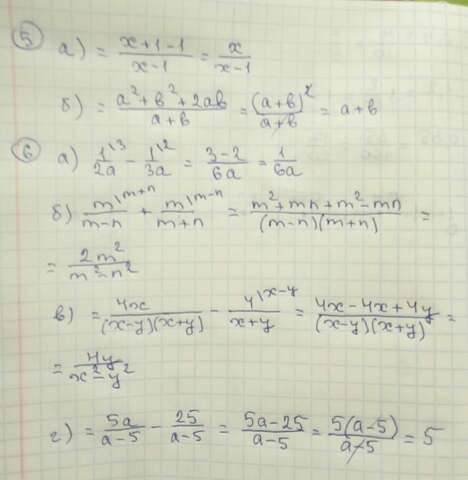 5 а) = (x+1-1)/(x-1) = x/(x-1)
б) = (a²+b²+2ab)/(a+b) = (a+b)²/(a+b) = a+b
6 а) 1\3/2a - 1\2/3a = (3-2)/6a = 1/6a
б) m\m+n/(m-n) + m\m-n/(m+n) = (m²+mn+m²-mn)/((m-n)(m+n)) =
= 2m²/(m²-n²)
в) = 4x/((x-y)(x+y)) - 4\x-y/(x+y) = (4x-4x+4y)/((x-y)(x+y)) =
= 4y/(x²-y²)
г) = 5a/(a-5) - 25/(a-5) = (5a-25)/(a-5) = 5(a-5)/(a-5) = 5